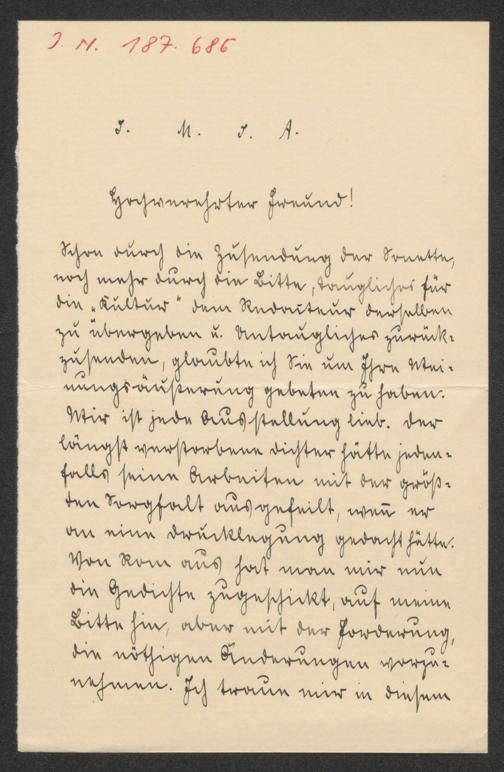 J. N. 187.686
J. M. J. A.
Hochverehrter Freund!
Schon durch die Zusendung der Sonette,
noch mehr durch die Bitte, Taugliches für
die „Kultur“ dem Redacteur derselben
zu übergeben u. Untaugliches zurück-
zusenden, glaubte ich Sie um Ihre Mei-
nungsäußerung gebeten zu haben.
Mir ist jede Ausstellung lieb. Der
längst verstorbene Dichter hätte jeden-
falls seine Arbeiten mit der größ-
ten Sorgfalt ausgefeilt, wen̄ er
an eine Drucklegung gedacht hätte.
Von Rom aus hat man mir nun
die Gedichte zugeschickt, auf meine
Bitte hin, aber mit der Forderung,
die nöthigen Änderungen vorzu-
nehmen. Ich traue mir in diesem